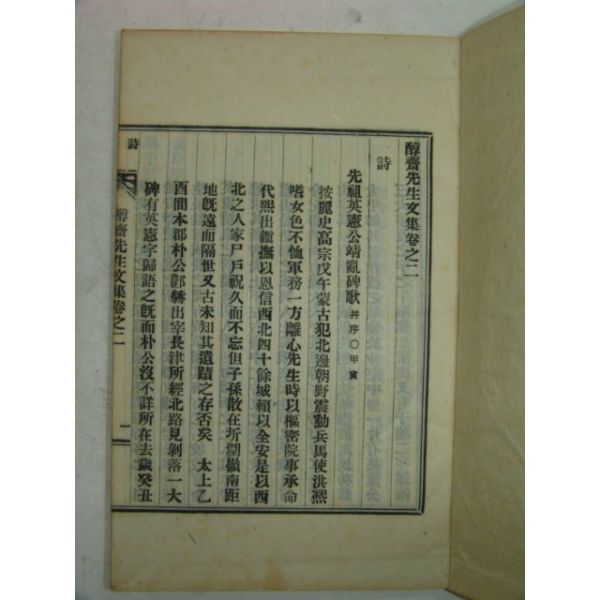 醇齋先生文集卷之二
詩
先祖英憲公靖亂碑歌 幷序○甲寅
按麗史高宗戊午蒙古犯北邊朝野震動兵馬使洪熙
嗜女色不恤軍務一方離心先生時以樞密院事承命
代熙出鎭撫以恩信西北四十餘城賴以全安是以西
北之人家尸戶祝久而不忘但子孫散在圻湖嶺南距
地旣遠而隔世又古未知其遺蹟之存否矣 太上乙
酉間本郡朴公 出宰長津所經北路見剝落一大
碑有英憲字歸語之旣而朴公沒不詳所在去歲癸丑
詩
醇齋先生文集卷之二
一